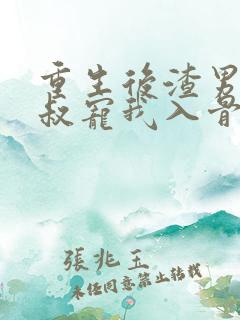 重生後渣男
叔寵我入骨
張兆玉
未经同意禁止转载